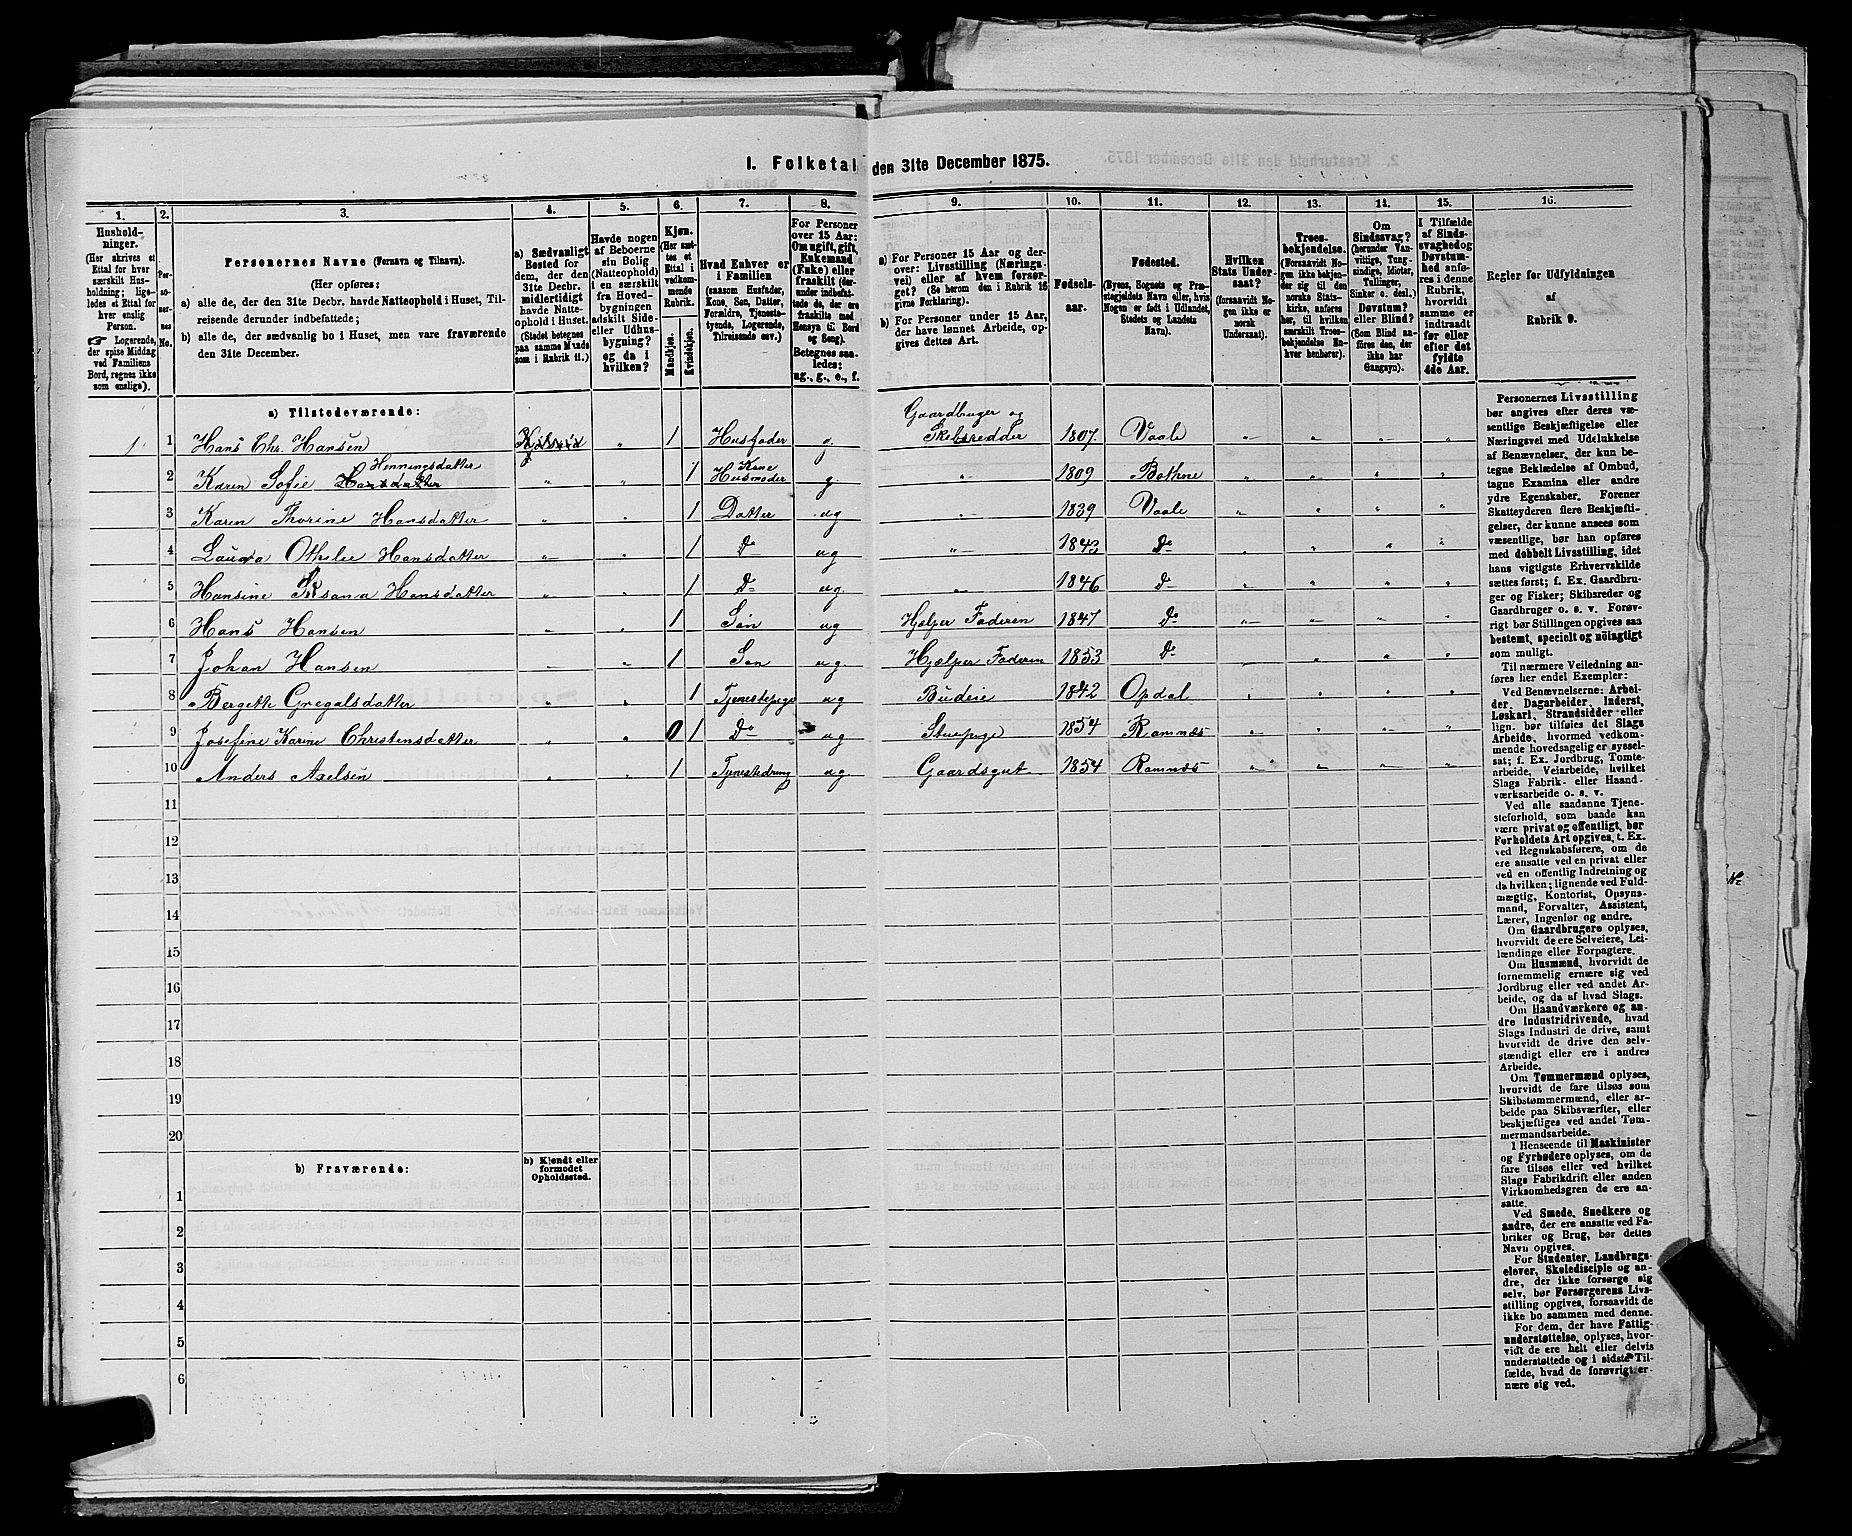 1. Folketal den 31te December 1875.
1. 2. 3. 4. 5. 6. 7. 8. 9. 10. 11. 12. 13. 14. 15. 16.
Hushold-
ninger.
(Her skrives et
Ettal for hver
særskilt Hus-
holdning; lige-
ledes et Ettal for
hver enslig
Person.
☞ Logerende,
der spise Middag
ved Familiens
Bord, regnes ikke
som enslige).
Per-
so-
ner-
nes
No.
Personernes Navne (Fornavn og Tilnavn).
(Her opføres:
a) alle de, der den 31te Decbr. havde Natteophold i Huset, Til-
reisende derunder indbefattede;
b) alle de, der sædvanlig bo i Huset, men vare fraværende
den 31te December.
a) Sædvanligt
Bosted for
dem, der den
31te Decbr.
midlertidigt
havde Natte-
ophold i Huset.
(Stedet betegnes
paa samme Maade
som i Rubrik 11.)
Havde nogen
af Beboerne
sin Bolig
(Natteophold)
i en særskilt
fra Hoved-
bygningen
adskilt Side-
eller Udhus-
bygning?
og da i
hvilken?
Kjøn.
(Her sæt-
tes et
Ettal i
vedkom-
mende
Rubrik.
Mandkjøn.
Kvindekjøn.
Hvad Enhver er
i Familien
(saasom Husfader,
Kone, Søn, Datter,
Forældre, Tjeneste-
tyende, Logerende,
Tilreisende osv.)
For Personer
over 15 Aar:
Om ugift, gift,
Enkemand
(Enke) eller
fraskilt (der-
under indbefat-
tede de, der ere
fraskilte med
Hensyn til Bord
og Seng).
Betegnes saa-
ledes:
ug., g., e., f.
a) For Personer 15 Aar og der-
over: Livsstilling (Nærings-
vei) eller af hvem forsør-
get? (Se herom den i Rubrik 16
givne Forklaring).
b) For Personer under 15 Aar,
der have lønnet Arbeide, op-
gives dettes Art.
Fødsels-
aar.
Fødested.
(Byens, Sognets og Præ-
stegjeldets Navn eller, hvis
Nogen er født i Udlandet,
Stedets og Landets
Navn).
Hvilken
Stats Under-
saat?
(forsaavidt No-
gen ikke er
norsk
Undersaat).
Troes-
bekjendelse.
(Forsaavidt No-
gen ikke bekjen-
der sig til den
norske Stats-
kirke, anføres
her, til hvilken
Troes-
bekjendelse En-
hver henhører).
Om
Sindssvag?
(herunder Van-
vittige, Tung-
sindige, Idioter,
Tullinger,
Sinker o. desl.)
Døvstum?
eller Blind?
(Som Blind an-
føres den, der
ikke har
Gangsyn).
I Tilfælde
af Sinds-
svaghed og
Døvstum-
hed anfø-
res i denne
Rubrik,
hvorvidt
samme er
indtraadt
før eller
efter det
fyldte
4de Aar.
Regler for Udfyldningen
af
Rubrik 9.
a) Tilstedeværende:
1 1 Hans Chr. Hansen " 1 Husfader g Gaardbruger og Skibsredder 1807 Vaale " " " "
2 Karen Sofie Henningsdatter " " 1 Kone Husmoder g " 1809 Bothne " " " "
3 Karen Thorine Hansdatter " " 1 Datter ug " 1839 Vaale " " " "
4 Laura Othilie Hansdatter " " 1 Do ug " 1843 Do " " " "
5 Hansine Hansdatter " " 1 Do ug. " 1846 Do " " " "
6 Hans Hansen " " 1 Søn ug Hjelper Faderen 1847 Do " " " "
7 Johan Hansen " " 1 Søn ug. Hjælper Faderen 1853 Do " " " "
8 Bergith Gregalsdatter " " 1 Tjenestepige ug Budeie 1842 Opdal " " " "
9 Josefine Karine Christensdatter " " 0 1 Do ug Stuepige 1854 Ramnæs " " " "
10 Anders Axelsen " " 1 Tjenestedreng ug Gaardsgut 1854 Ramnæs " " " "
11
12
13
14
15
16
17
18
19
20
b) Fraværende:
b) Kjendt eller
formodet
Opholdssted.
1
2
3
4
5
6
Personernes Livsstilling
bør angives efter deres væ-
sentlige Beskjæftigelse eller
Næringsvei med Udelukkelse
af Benævnelser, der kun be-
tegne Beklædelse af Ombud,
tagne Examina eller andre
ydre Egenskaber. Forener
Skatteyderen flere Beskjæfti-
gelser, der kunne ansees som
væsentlige, bør han opføres
med dobbelt Livsstilling, idet
hans vigtigste Erhvervskilde
sættes først; f. Ex. Gaardbru-
ger og Fisker; Skibsreder og
Gaardbruger o. s. v. Forøv-
rigt bør Stillingen opgives saa
bestemt, specielt og nöiagtigt
som muligt.
Til nærmere Veiledning an-
føres her endel Exempler:
Ved Benævnelserne: Arbei-
der, Dagarbeider, Inderst,
Løskarl, Strandsidder eller
lign. bør tilføies det Slags
Arbeide, hvormed vedkom-
mende hovedsagelig er syssel-
sat; f. Ex. Jordbrug, Tomte-
arbeide, Veiarbeide, hvilket
Slags Fabrik- eller Haand-
værksarbeide o. s. v.
Ved alle saadanne Tjene-
steforhold, som baade kan
være privat og offentligt, bør
Forholdets Art opgives, t. Ex.
ved Regnskabsførere, om de
ere ansatte ved en privat eller
ved en offentlig Indretning og
da hvilken; lignende ved Fuld-
mægtig, Kontorist, Opsyns-
mand, Forvalter, Assistent,
Lærer, Ingeniør og andre.
Om Gaardbrugere oplyses,
hvorvidt de ere Selveiere, Lei-
lændinge eller Forpagtere.
Om Husmænd, hvorvidt de
fornemmelig ernære sig ved
Jordbrug eller ved andet Ar-
beide, og da af hvad Slags.
Om Haandværkere og an-
dre Industridrivende, hvad
Slags Industri de drive, samt
hvorvidt de drive den selv-
stændigt eller ere i andres
Arbeide.
Om Tømmermænd oplyses,
hvorvidt de fare tilsøs som
Skibstømmermænd, eller ar-
beide paa Skibsværfter, eller
beskjæftiges ved andet Tøm-
mermandsarbeide.
I Henseende til Maskinister
og Fyrbødere oplyses, om de
fare tilsøs eller ved hvilket
Slags Fabrikdrift eller anden
Virksomhedsgren de ere an-
satte.
Ved Smede, Snedkere og
andre, der ere ansatte ved Fa-
briker og Brug, bør dettes
Navn opgives.
For Studenter, Landbrugs-
elever, Skoledisciple og an-
dre, der ikke forsørge sig
selv, bør Forsørgerens Livs-
stilling opgives, forsaavidt de
ikke bo sammen med denne.
For dem, der have Fattig-
understøttelse, oplyses, hvor-
vidt de ere helt eller delvis
understøttede og i sidste Til-
fælde, hvad de forøvrigt er-
nære sig ved.